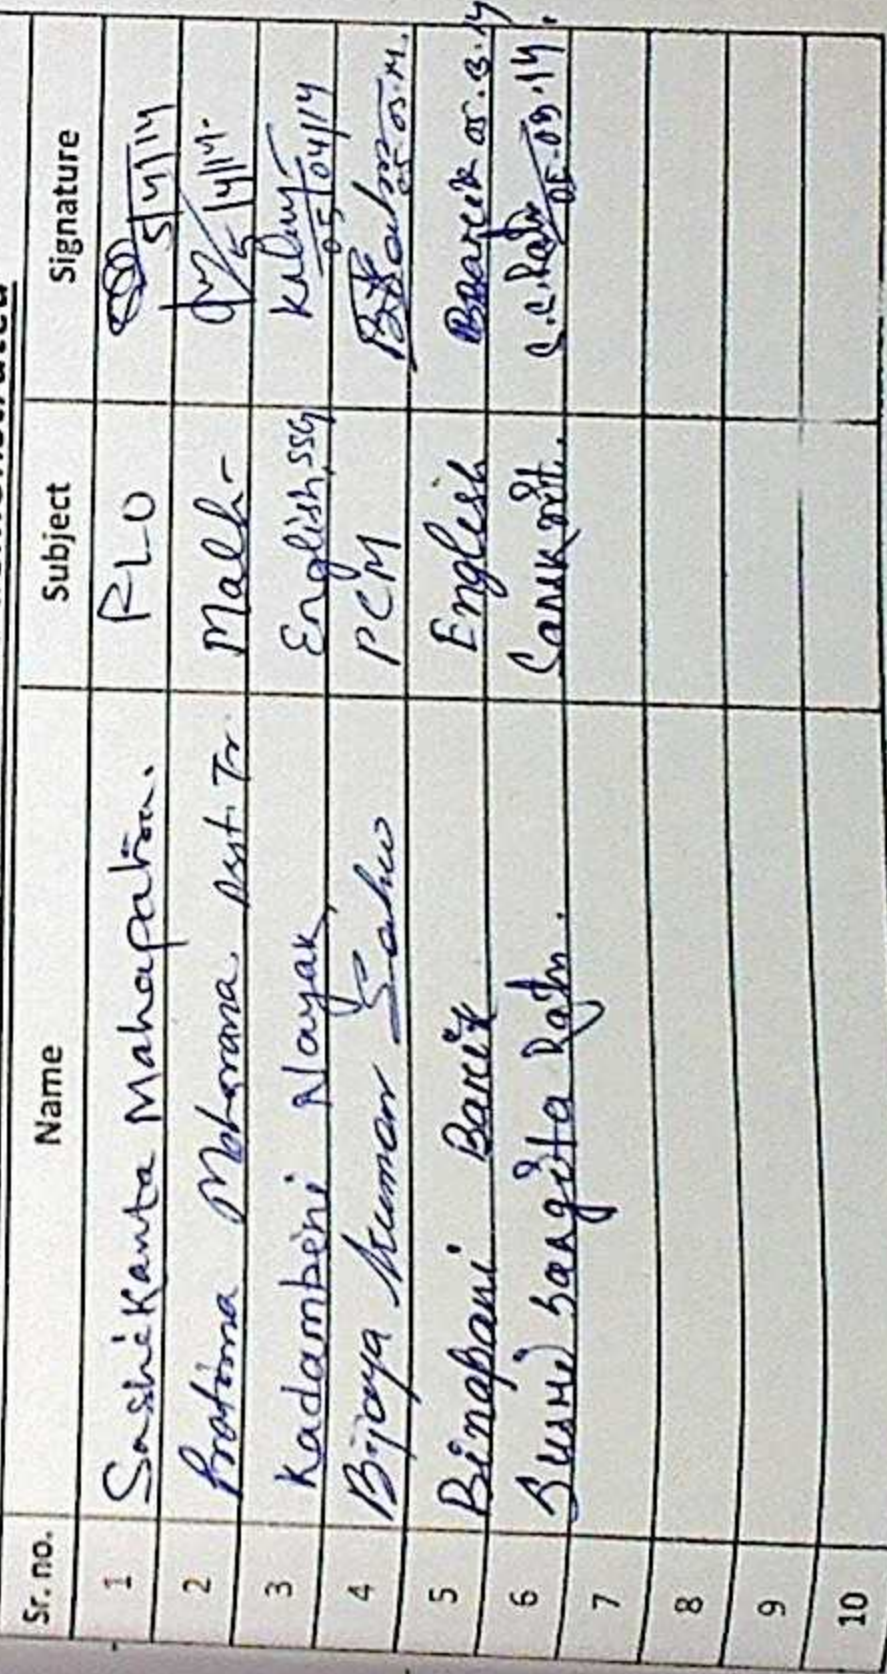 Sr. no. Name Subject Signature
1 Sashikanta Mahapatra. RLO 5/4/14
2 Pratima Moharana. Asst. Tr. Math- 5/4/14.
3 Kadambini Nayak, English, SSG 05/04/14
4 Bijaya Kumar Sahu PCM
5 Binapani Barik English Bbarik 05.3.14
6 Susri Sangita Rath. Sanskrit. S.S.Rath 05.03.14.
7
8
9
10